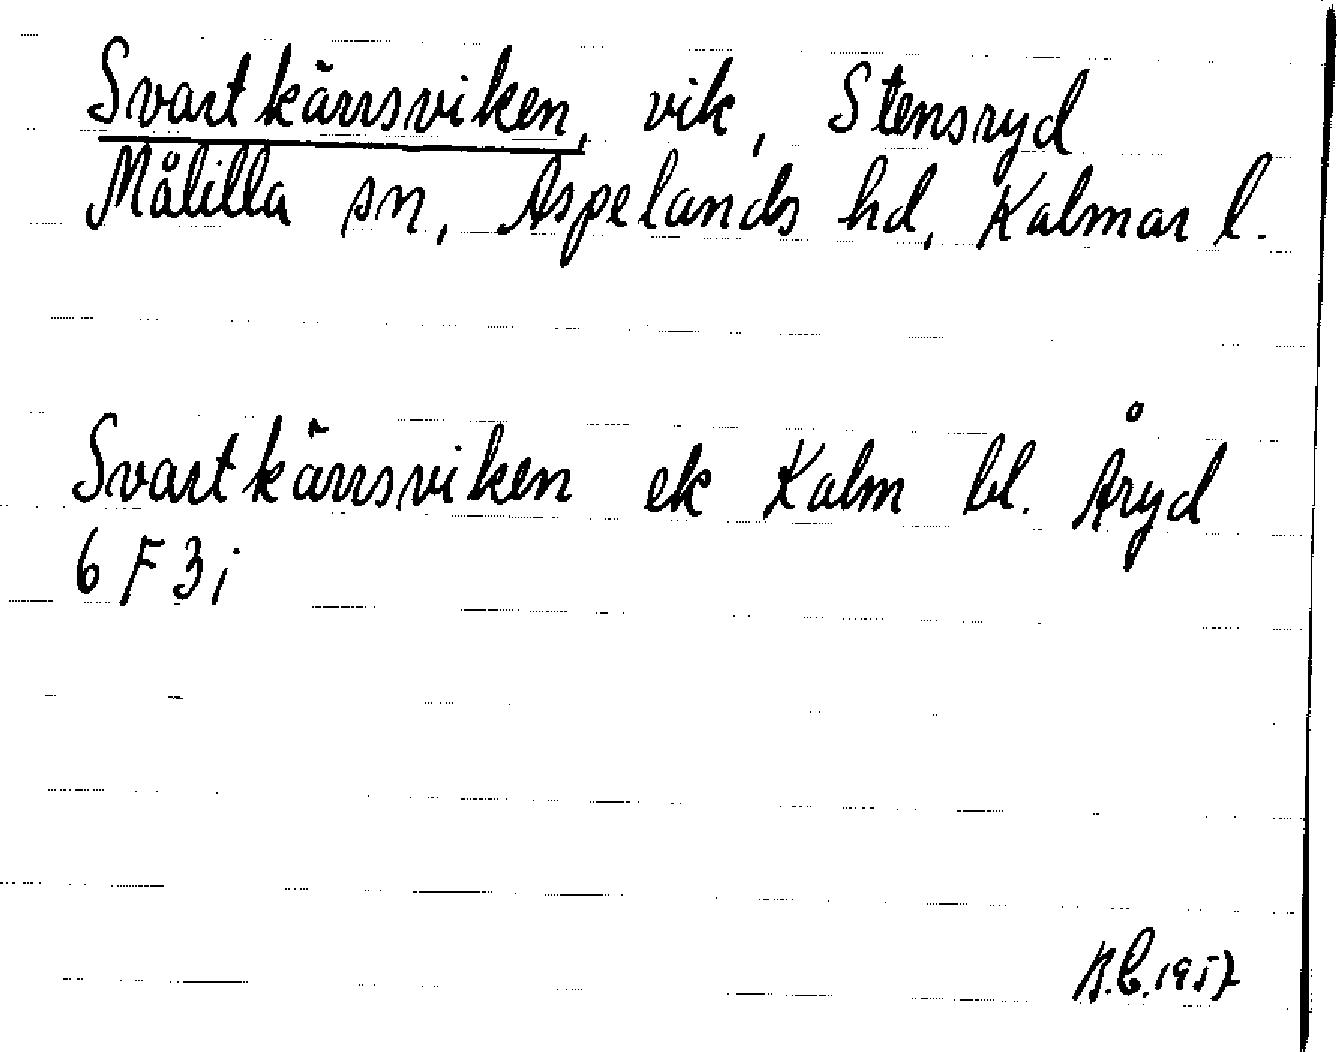 Svartkärrsviken, vik, Stensryd
Målilla sn, Aspelands hd, Kalmar l.
Svartkärrsviken ek Kalm bl. Åryd
6 F 3 i
B.C. 1957